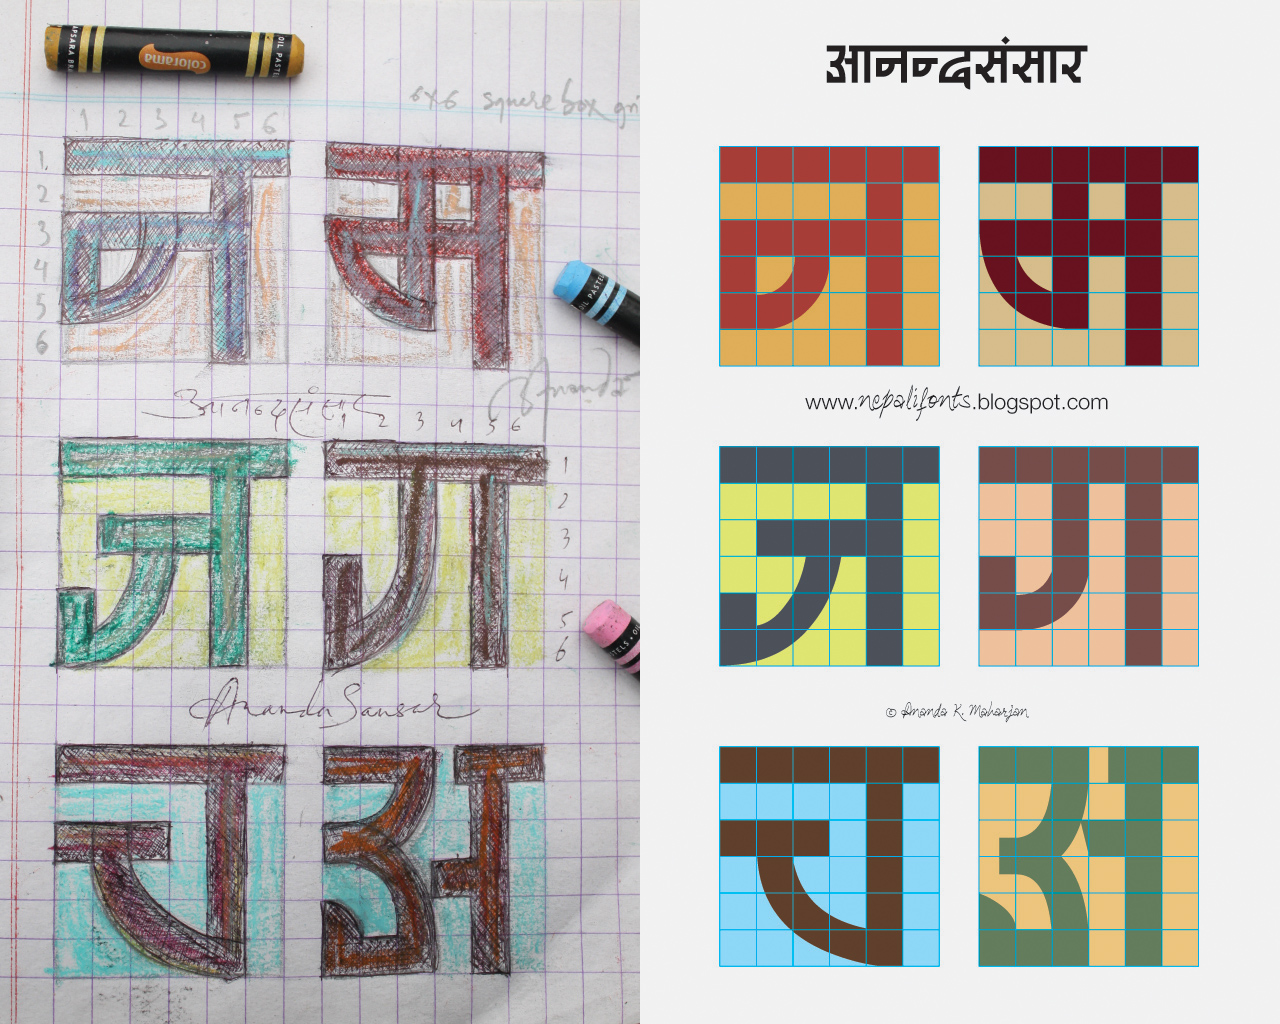 colorama
OIL PASTEL
6x6 square box gri
1 2 3 4 5 6
1
2
3
4
5
6
न स
Ananda
आनन्दसंसार
1 2 3 4 5 6
ज ग
1
2
3
4
5
6
OIL PASTE
Ananda Sansar
च अ
आनन्दसंसार
न स
www.nepalifonts.blogspot.com
ज ग
© Ananda K. Maharjan
च अ